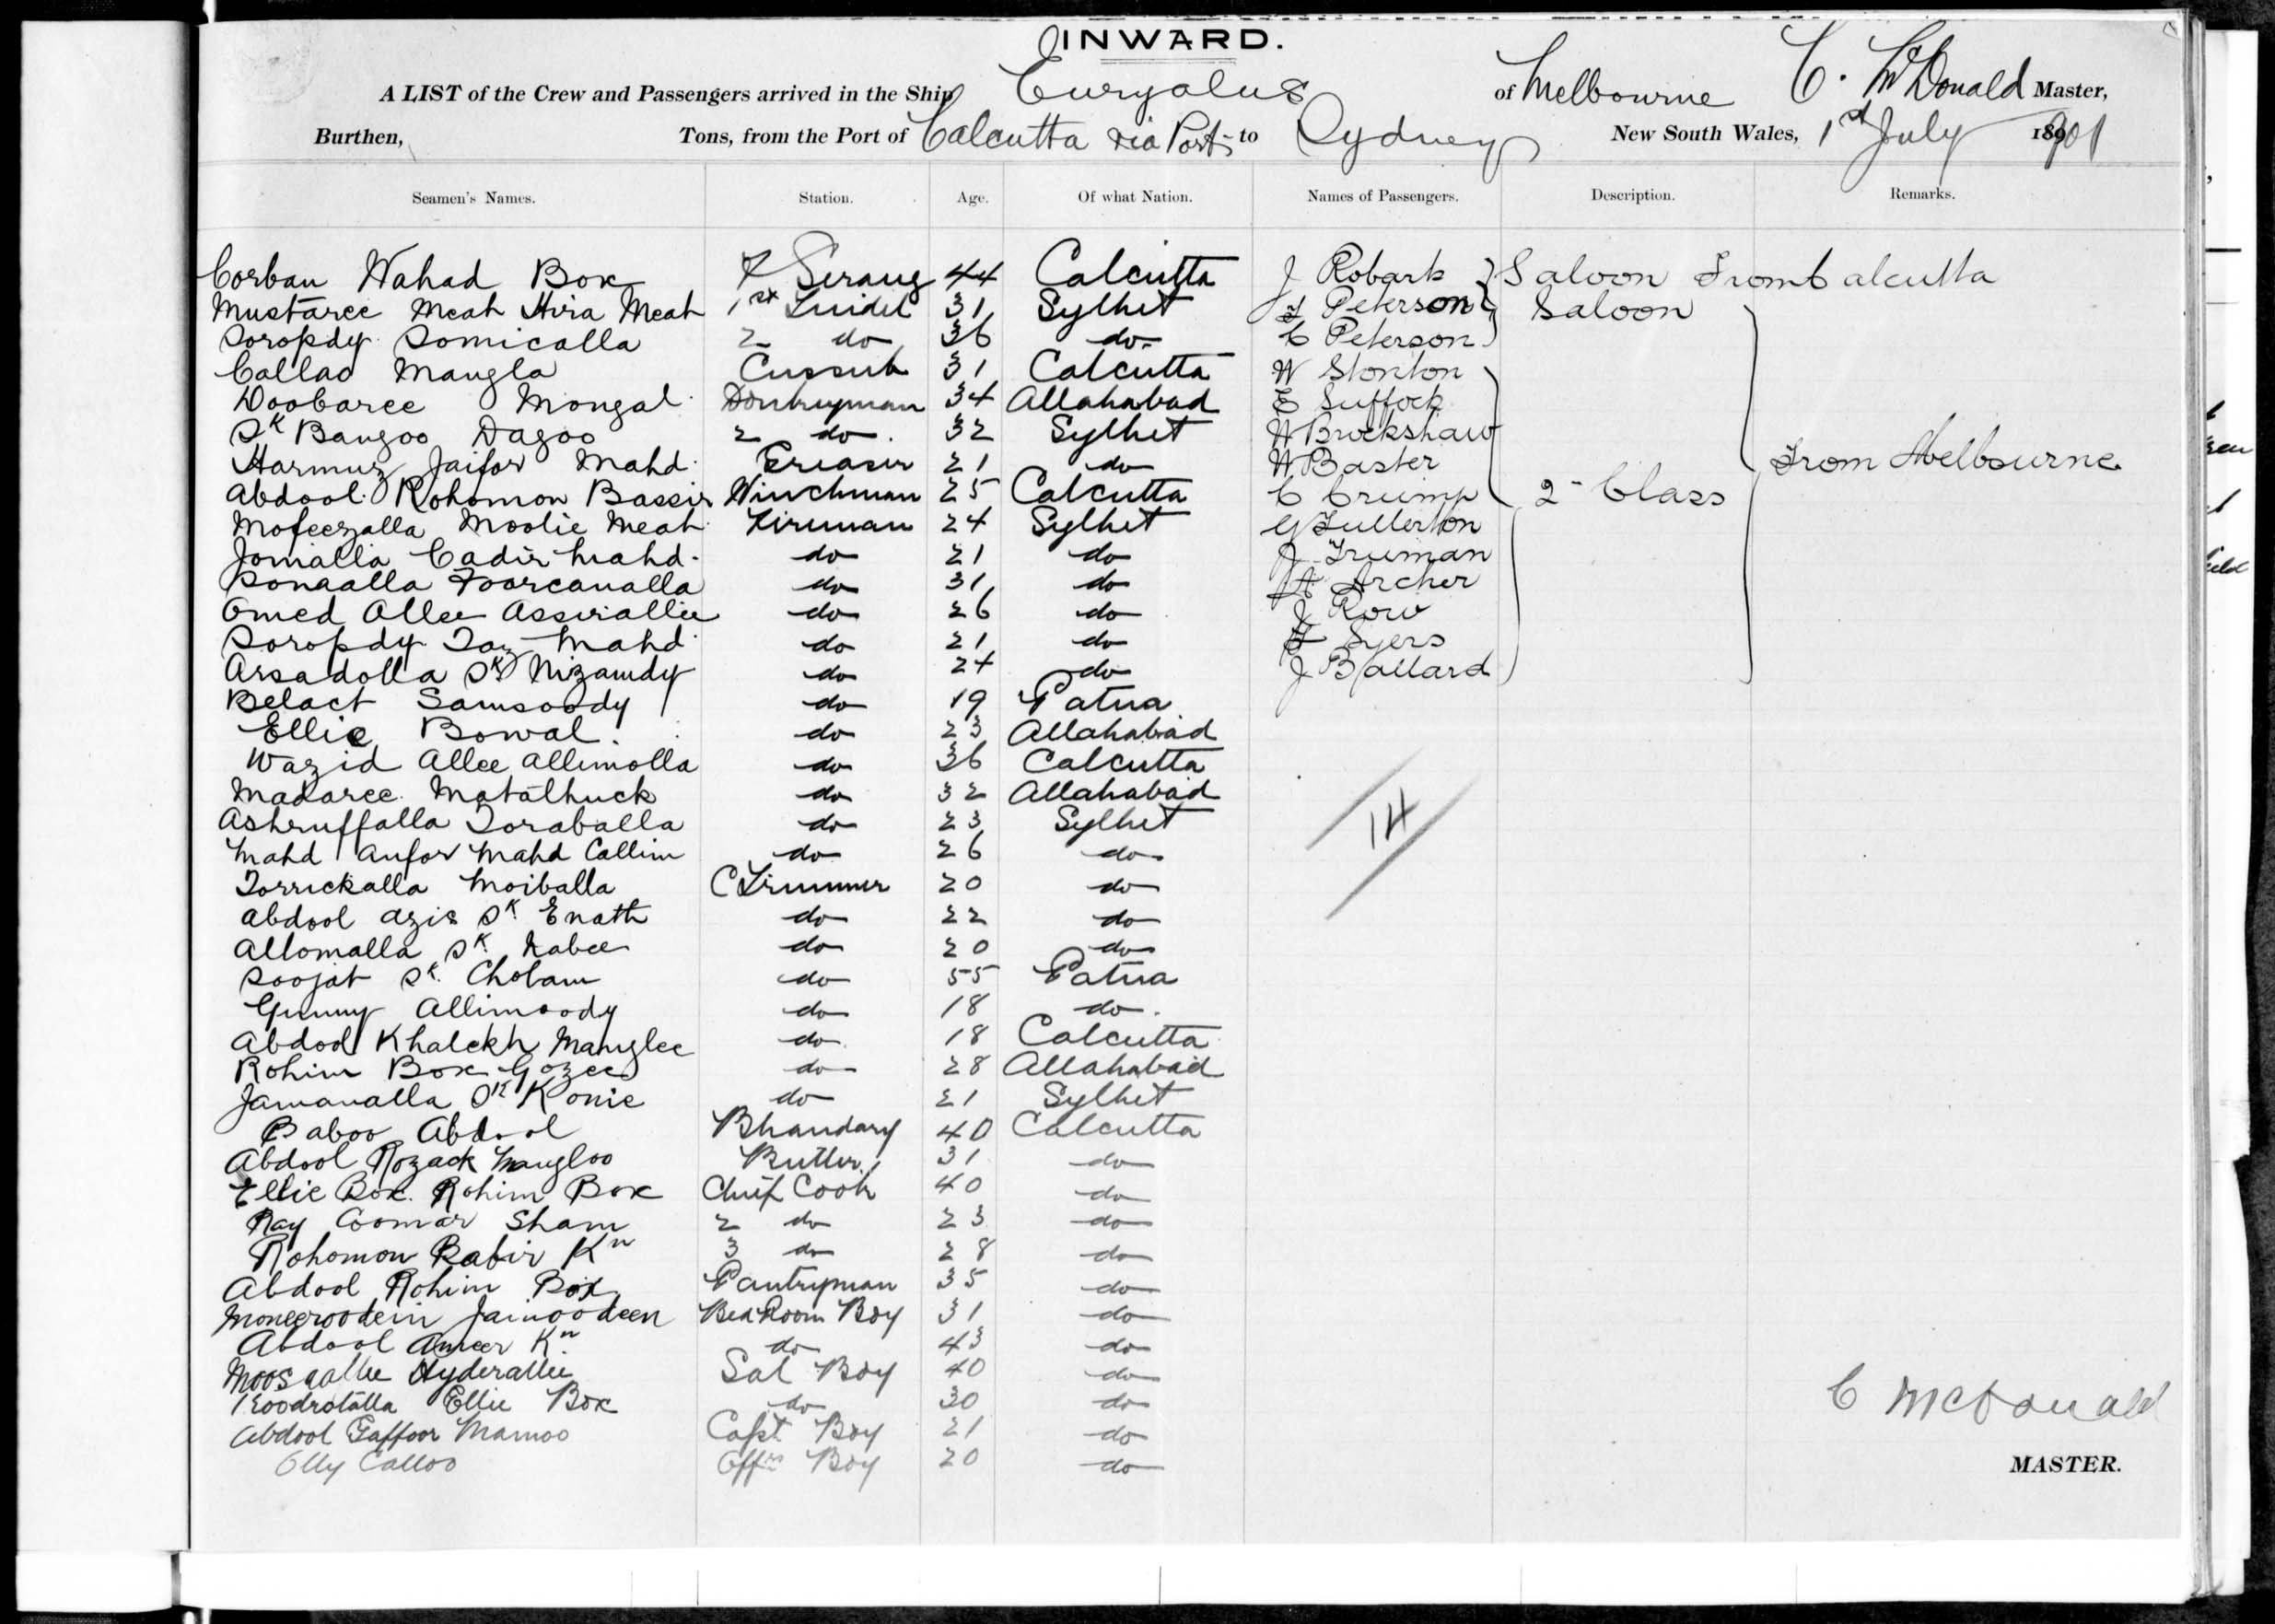 INWARD.
A LIST of the Crew and Passengers arrived in the Ship Euryalus of Melbourne C. McDonald Master,
Burthen, Tons, from the Port of Calcutta via Ports to Sydney New South Wales, 1st July 1901
Seamen's Names. Station. Age. Of what Nation. Names of Passengers. Description. Remarks.
Corban Wahad Box Serang 44 Calcutta J Robarts Saloon From Calcutta
Mustaree Meah Hira Meah 1st 31 Sylhet Peterson Saloon
Soropdy Somicalla 2 do 36 do C Peterson
Callao Mangla Cussub 31 Calcutta W Stonton
Doobaree Mongal Donkeyman 34 Allahabad E Suffock
Sk Bangoo Dagoo 2 do 32 Sylhet W Brockshaw
Harmuz Jaifor Mahd Greaser 21 do W Baster From Melbourne
Abdool Rohomon Bassir Winchman 25 Calcutta C Crump 2 Class
Mofeezalla Moolie Meah Fireman 24 Sylhet G Fullerton
Jomalla Cadir Mahd do 21 do J Truman
Sonaalla Foorcanalla do 31 do A Archer
Omed Allee Assirallie do 26 do J Row
Soropdy Taz Mahd do 21 do Syers
Arsadolla Sk Nizamdy do 24 do J Ballard
Belact Samsoody do 19 Patna
Ellie Bowal do 23 Allahabad
Wazid Allee Allimolla do 36 Calcutta
Madaree Matalhuck do 32 Allahabad
Ashruffalla Toraballa do 23 Sylhet 14
Mahd Anfor Mahd Collim do 26 do
Torrickalla Moiballa C Trimmer 20 do
Abdool Azis Sk Enath do 22 do
Allomalla Sk Nabee do 20 do
Soojat Sk Cholam do 55 Patna
Gunny Allimoody do 18 do
Abdool Khalekh Manglee do 18 Calcutta
Rohim Box Gozee do 28 Allahabad
Jamanalla Sk Konie do 21 Sylhet
Baboo Abdool Bhandary 40 Calcutta
Abdool Rozack Mangloo Butler 31 do
Ellie Box Rohim Box Chief Cook 40 do
Ray Coomar Sham 2 do 23 do
Rohomon Rabir Kn 3 do 28 do
Abdool Rohim Box Pantryman 35 do
Moneeroodein Jainoodeen Bed Room Boy 31 do
Abdool Ameer Kn do 43 do
Moosaallie Hyderallie Sal Boy 40 do
Koodrotalla Ellie Box do 30 do C McDonald
Abdool Gaffoor Mamoo Capt Boy 21 do
Olly Calloo Offrs Boy 20 do MASTER.